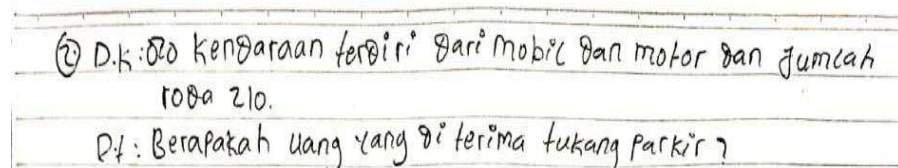 ② D.k: 80 kendaraan terdiri dari mobil dan motor dan Jumlah
roda 210.
Dt: Berapakah uang yang di terima tukang parkir?